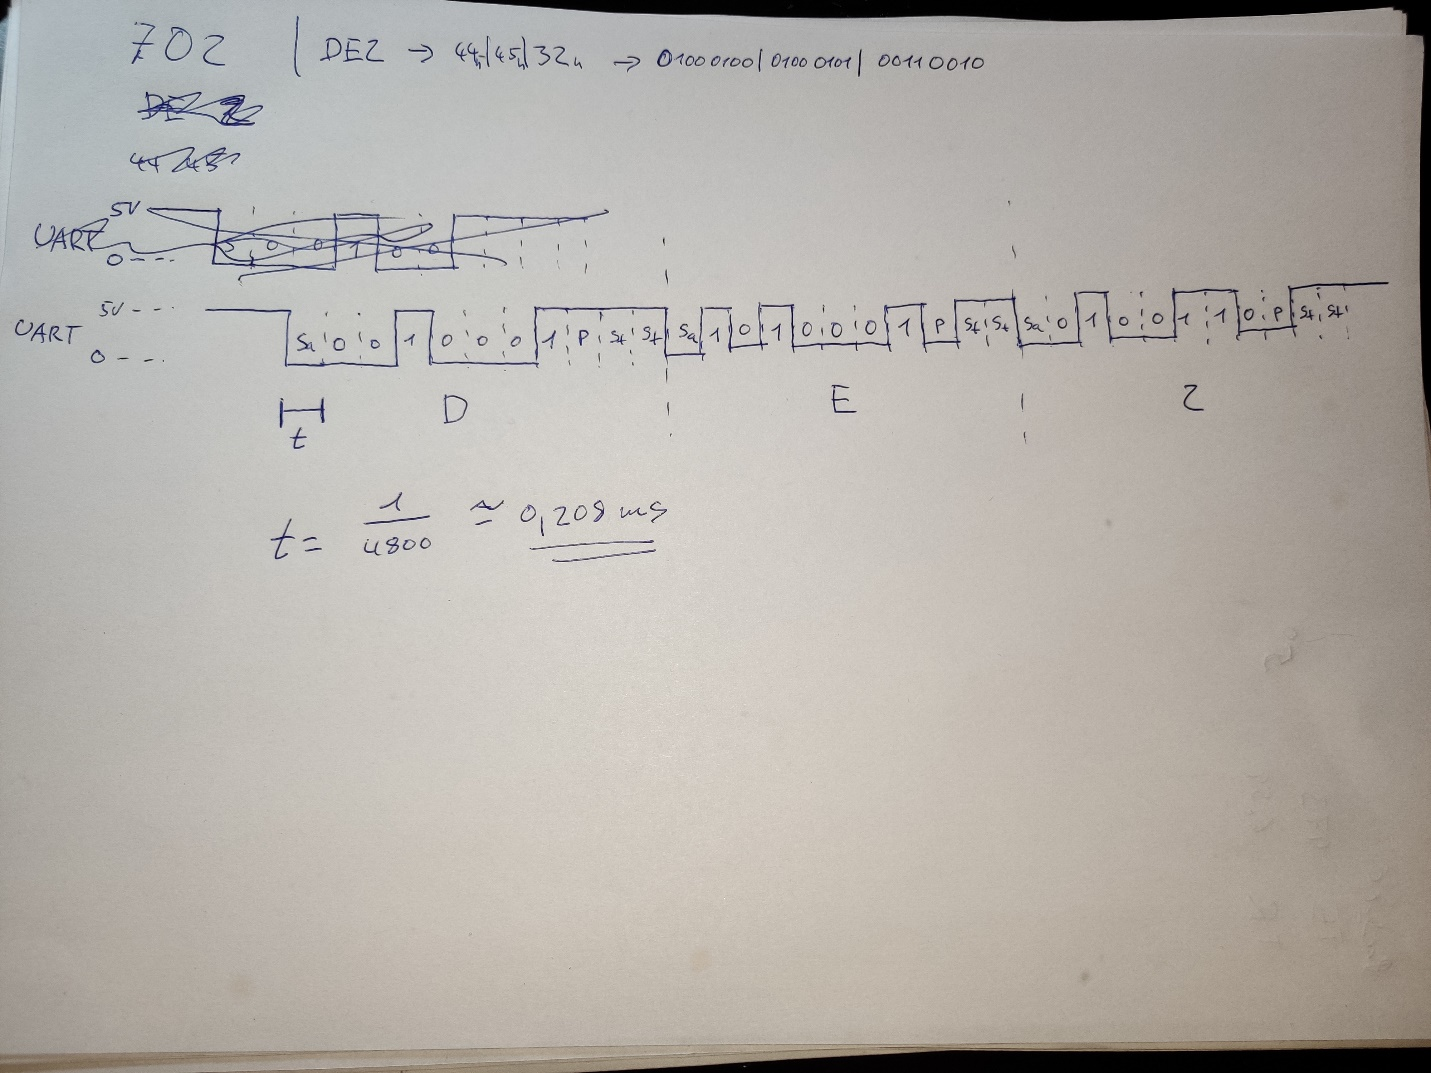 702 | DE2 → 44h|45h|32h → 01000100|01000101|00110010
5V
UART
0
5V
UART
0
Sa 0 0 1 0 0 0 1 P St St Sa 1 0 1 0 0 0 1 P St St Sa 0 1 0 0 1 1 0 P St St
t D E 2
t = 1/4800 ≈ 0,208 ms